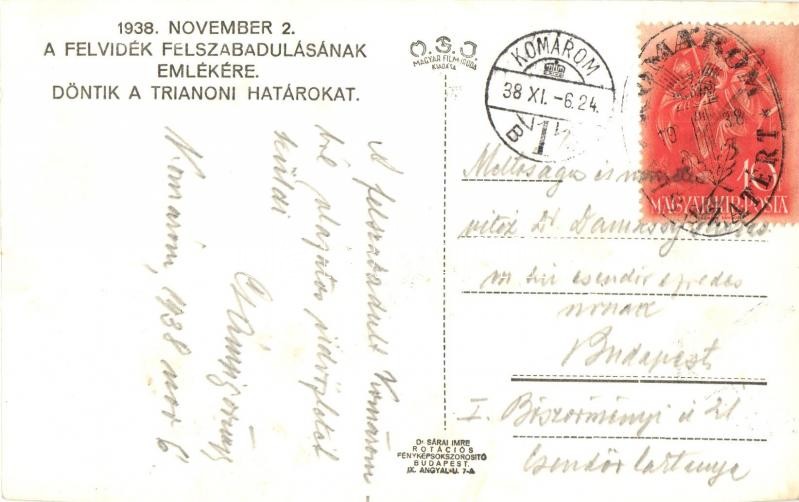 1938. NOVEMBER 2.
A FELVIDÉK FELSZABADULÁSÁNAK
EMLÉKÉRE.
DÖNTIK A TRIANONI HATÁROKAT.
MAGYAR FILM IRODA
KIADÁSA
KOMÁROM
38 XI. -6.24.
KOMÁROM
10
MAGYAR KIR. POSTA
A felszabadult Komárom
küldi
Komárom, 1938 nov 6
Méltóságos és
vitéz Dr
csendőr ezredes
úrnak
Budapest
I. Böszörményi út 21
Csendőr laktanya
Dr SÁRAI IMRE
ROTÁCIÓS
FÉNYKÉPSOKSZOROSITÓ
BUDAPEST.
IX. ANGYAL-U. 7-A